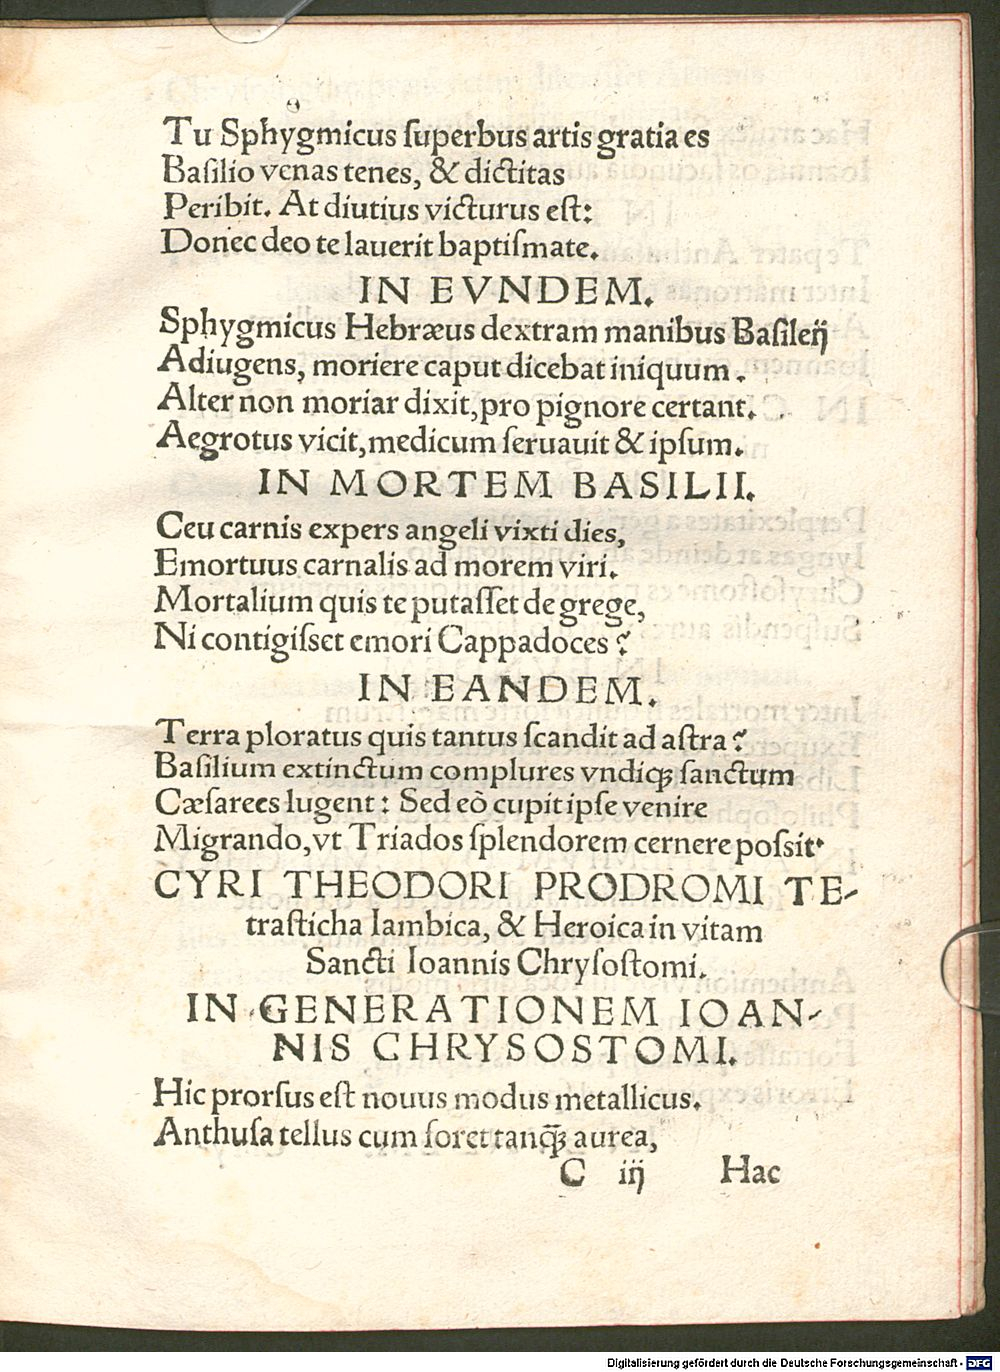 Tu Sphygmicus ſuperbus artis gratia es
Baſilio venas tenes, & dictitas
Peribit. At diutius victurus eſt:
Donec deo te lauerit baptiſmate.
IN EVNDEM.
Sphygmicus Hebræus dextram manibus Baſileij
Adiugens, moriere caput dicebat iniquum.
Alter non moriar dixit, pro pignore certant.
Aegrotus vicit, medicum ſeruauit & ipſum.
IN MORTEM BASILII.
Ceu carnis expers angeli vixti dies,
Emortuus carnalis ad morem viri.
Mortalium quis te putaſſet de grege,
Ni contigiſset emori Cappadoces?
IN EANDEM.
Terra ploratus quis tantus ſcandit ad aſtra?
Baſilium extinctum complures vndiqꝫ ſanctum
Cæſarees lugent: Sed eò cupit ipſe venire
Migrando, vt Triados ſplendorem cernere poſsit.
CYRI THEODORI PRODROMI TE-
traſticha Iambica, & Heroica in vitam
Sancti Ioannis Chryſoſtomi.
IN GENERATIONEM IOAN-
NIS CHRYSOSTOMI.
Hic prorſus eſt nouus modus metallicus.
Anthuſa tellus cum foret tanq̃ꝫ aurea,
C iij Hac
Digitalisierung gefördert durch die Deutsche Forschungsgemeinschaft - DFG